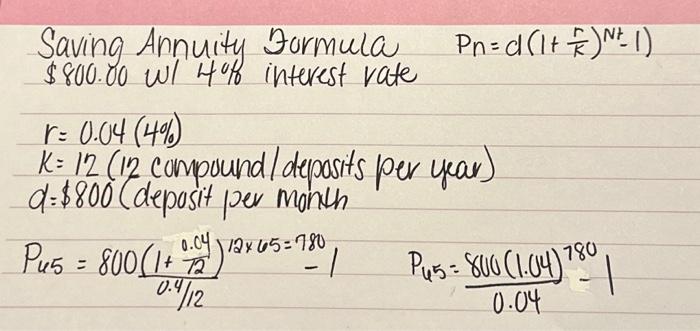 Saving Annuity Formula Pn = d(1+ r/k)^Nt - 1)
$800.00 w/ 4% interest rate
r= 0.04 (4%)
K= 12 (12 compound/deposits per year)
d=$800 (deposit per month
P65 = 800(1+ 0.04/12)^12x65=780 - 1 / 0.4/12 P65 = 800(1.04)^780 - 1 / 0.04